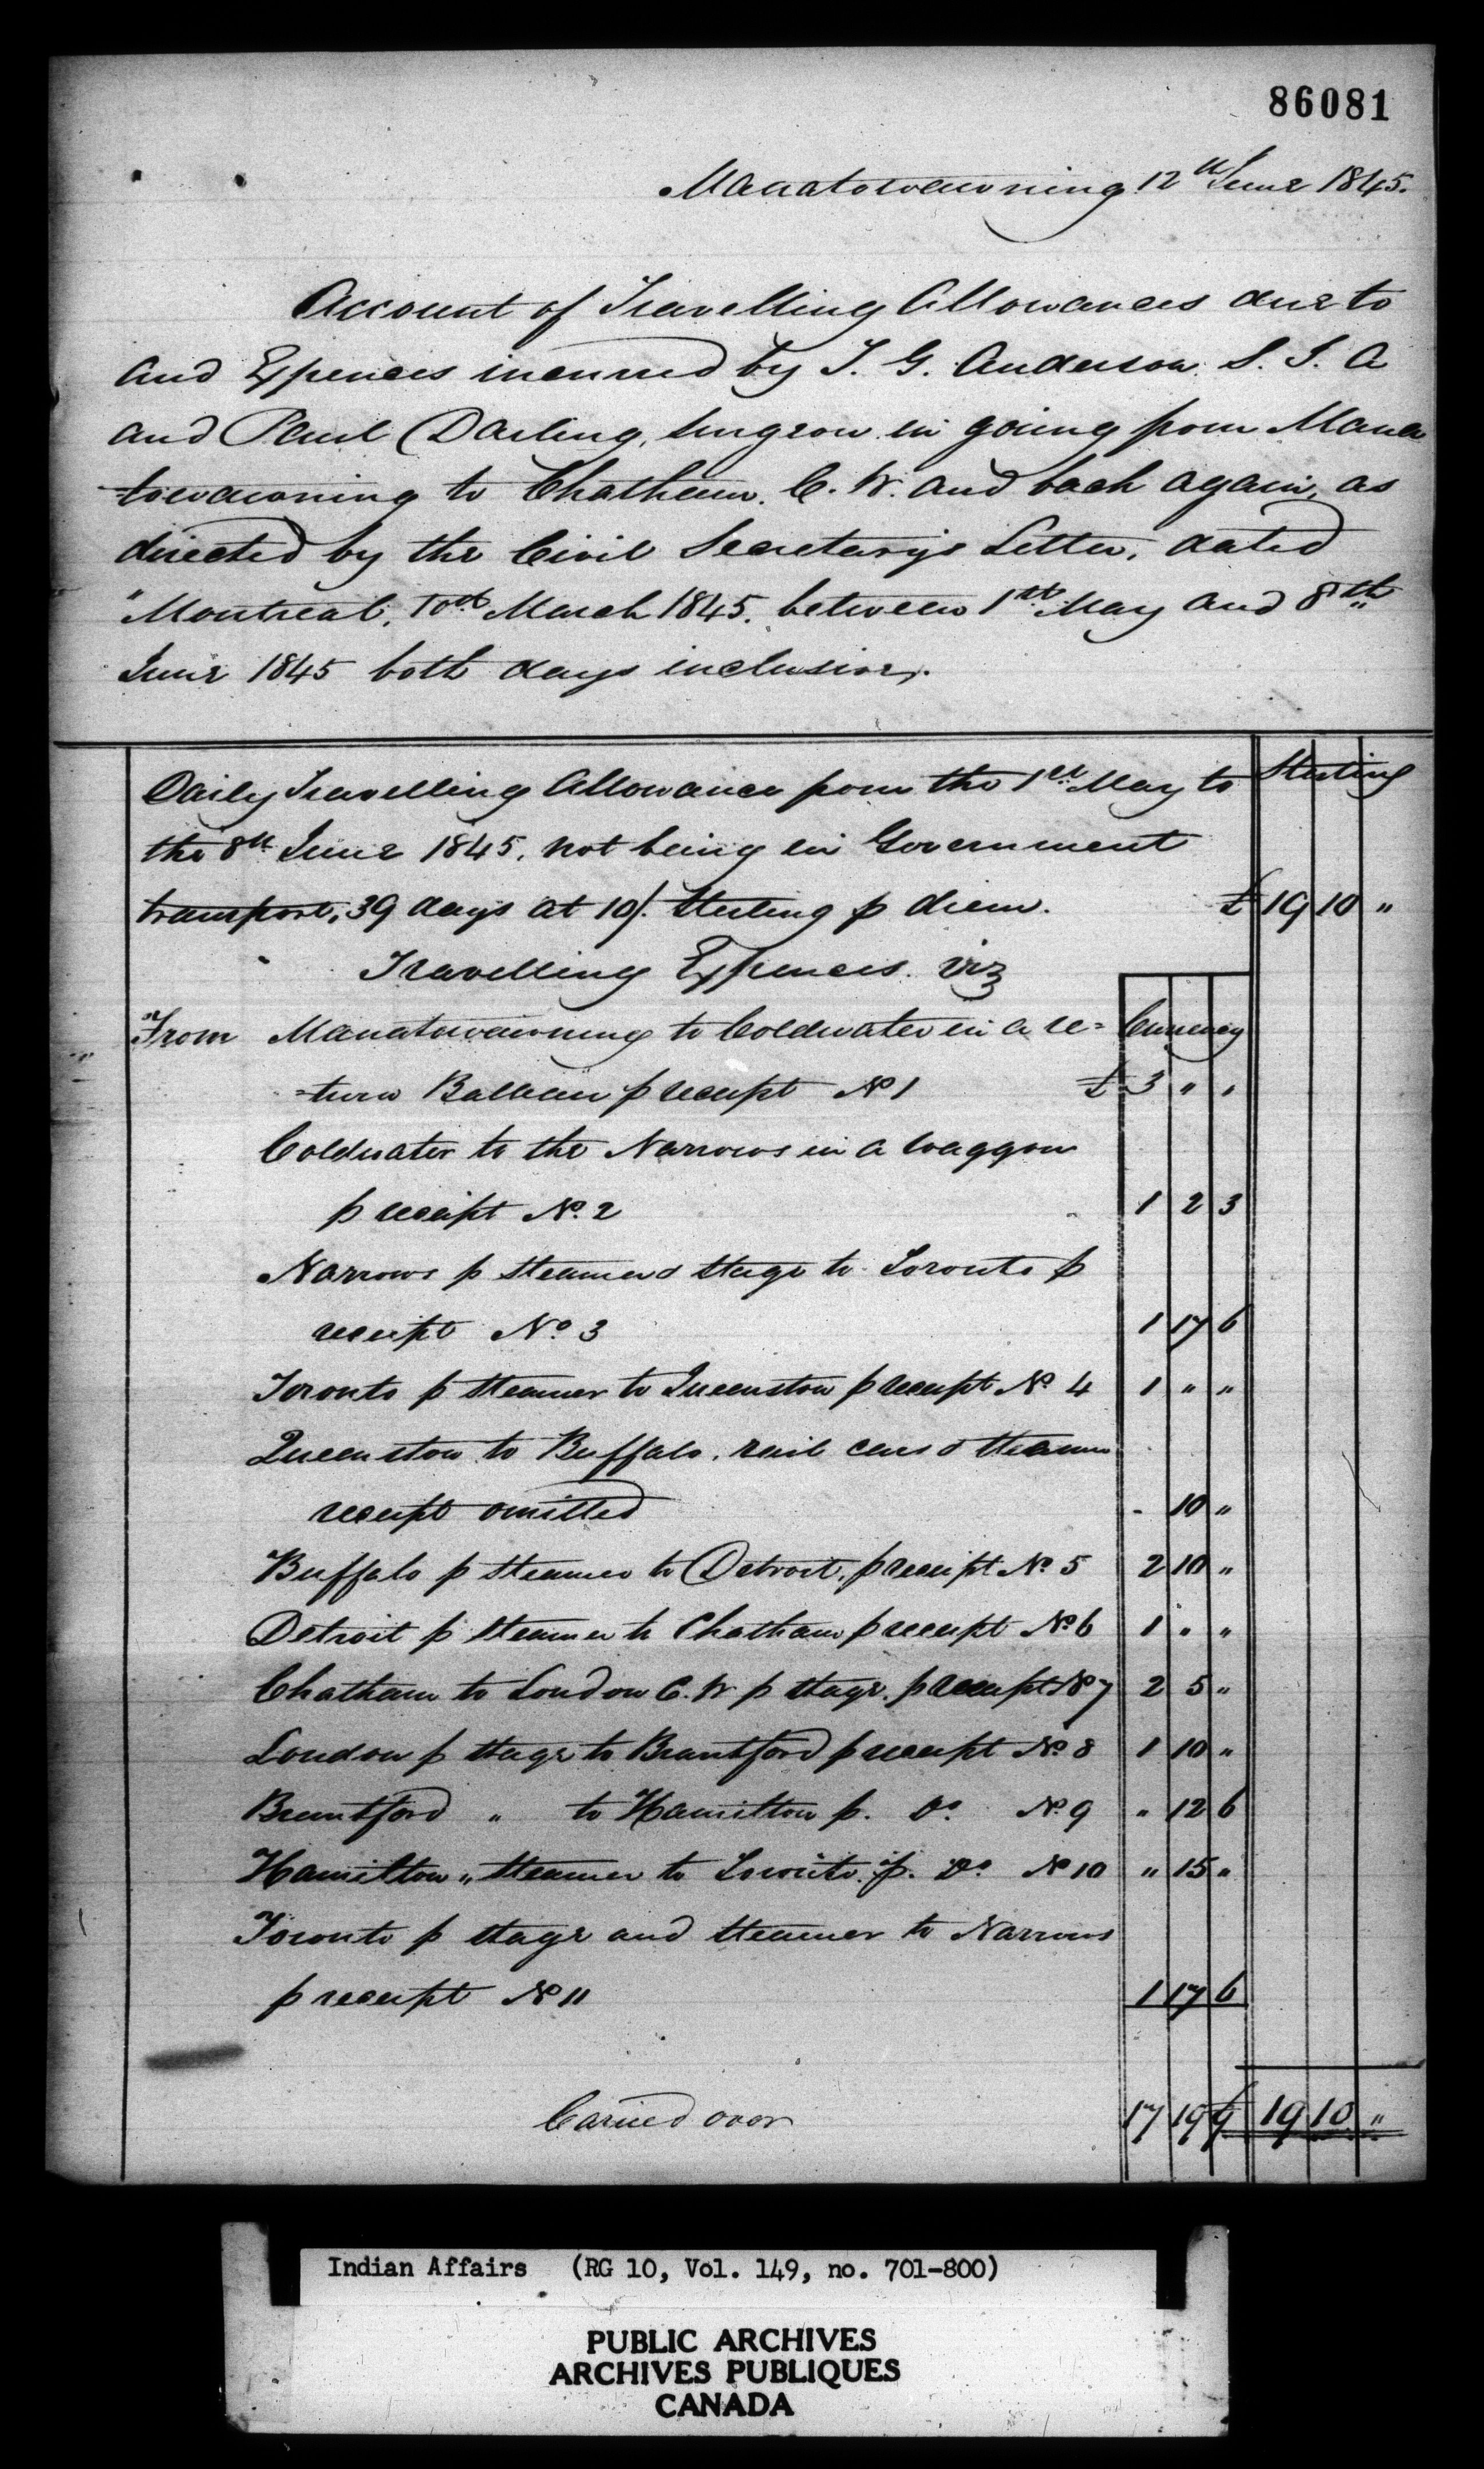 86081
Manatowawning 12th June 1845.
Account of Travelling Allowances due to
and Expences incurred by T. G. Anderson. S. I. A
and Paul Darling, Surgeon in going from Mana
-towawning to Chatham. C. W. and back again, as
directed by the Civil Secretary's Letter, dated
"Montreal, 10th March 1845. between 1st May and 8th
June 1845 both days inclusive.
Daily Travelling Allowance from the 1st May to Sterling
the 8th June 1845. not being in Government
transport, 39 days at 10/. Sterling p diem. £ 19 10 "
Travelling Expences. viz
From Manatowawning to Coldwater in a re= Currency
=turn Batteau p receipt No 1 £ 3 " "
Coldwater to the Narrows in a waggon
p receipt No. 2 1 2 3
Narrows p steamer & stage to Toronto p
receipt No. 3 1 17 6
Toronto p steamer to Queenston p receipt No 4 1 " "
Queenston to Buffalo. rail cars & steamer
receipt omitted - 10 "
Buffalo p steamer to Detroit, p receipt No. 5 2 10 "
Detroit p steamer to Chatham p receipt No 6 1 " "
Chatham to London C. W p stage. p receipt No 7 2 5 "
London p stage to Brantford p receipt No. 8 1 10 "
Brantford " to Hamilton p. Do. No. 9 " 12 6
Hamilton " steamer to Toronto. p. Do. No 10 " 15 "
Toronto p stage and steamer to Narrows
p receipt No 11 1 17 6
Carried over 17 19 9 £ 19 10 "
Indian Affairs (RG 10, Vol. 149, no. 701-800)
PUBLIC ARCHIVES
ARCHIVES PUBLIQUES
CANADA